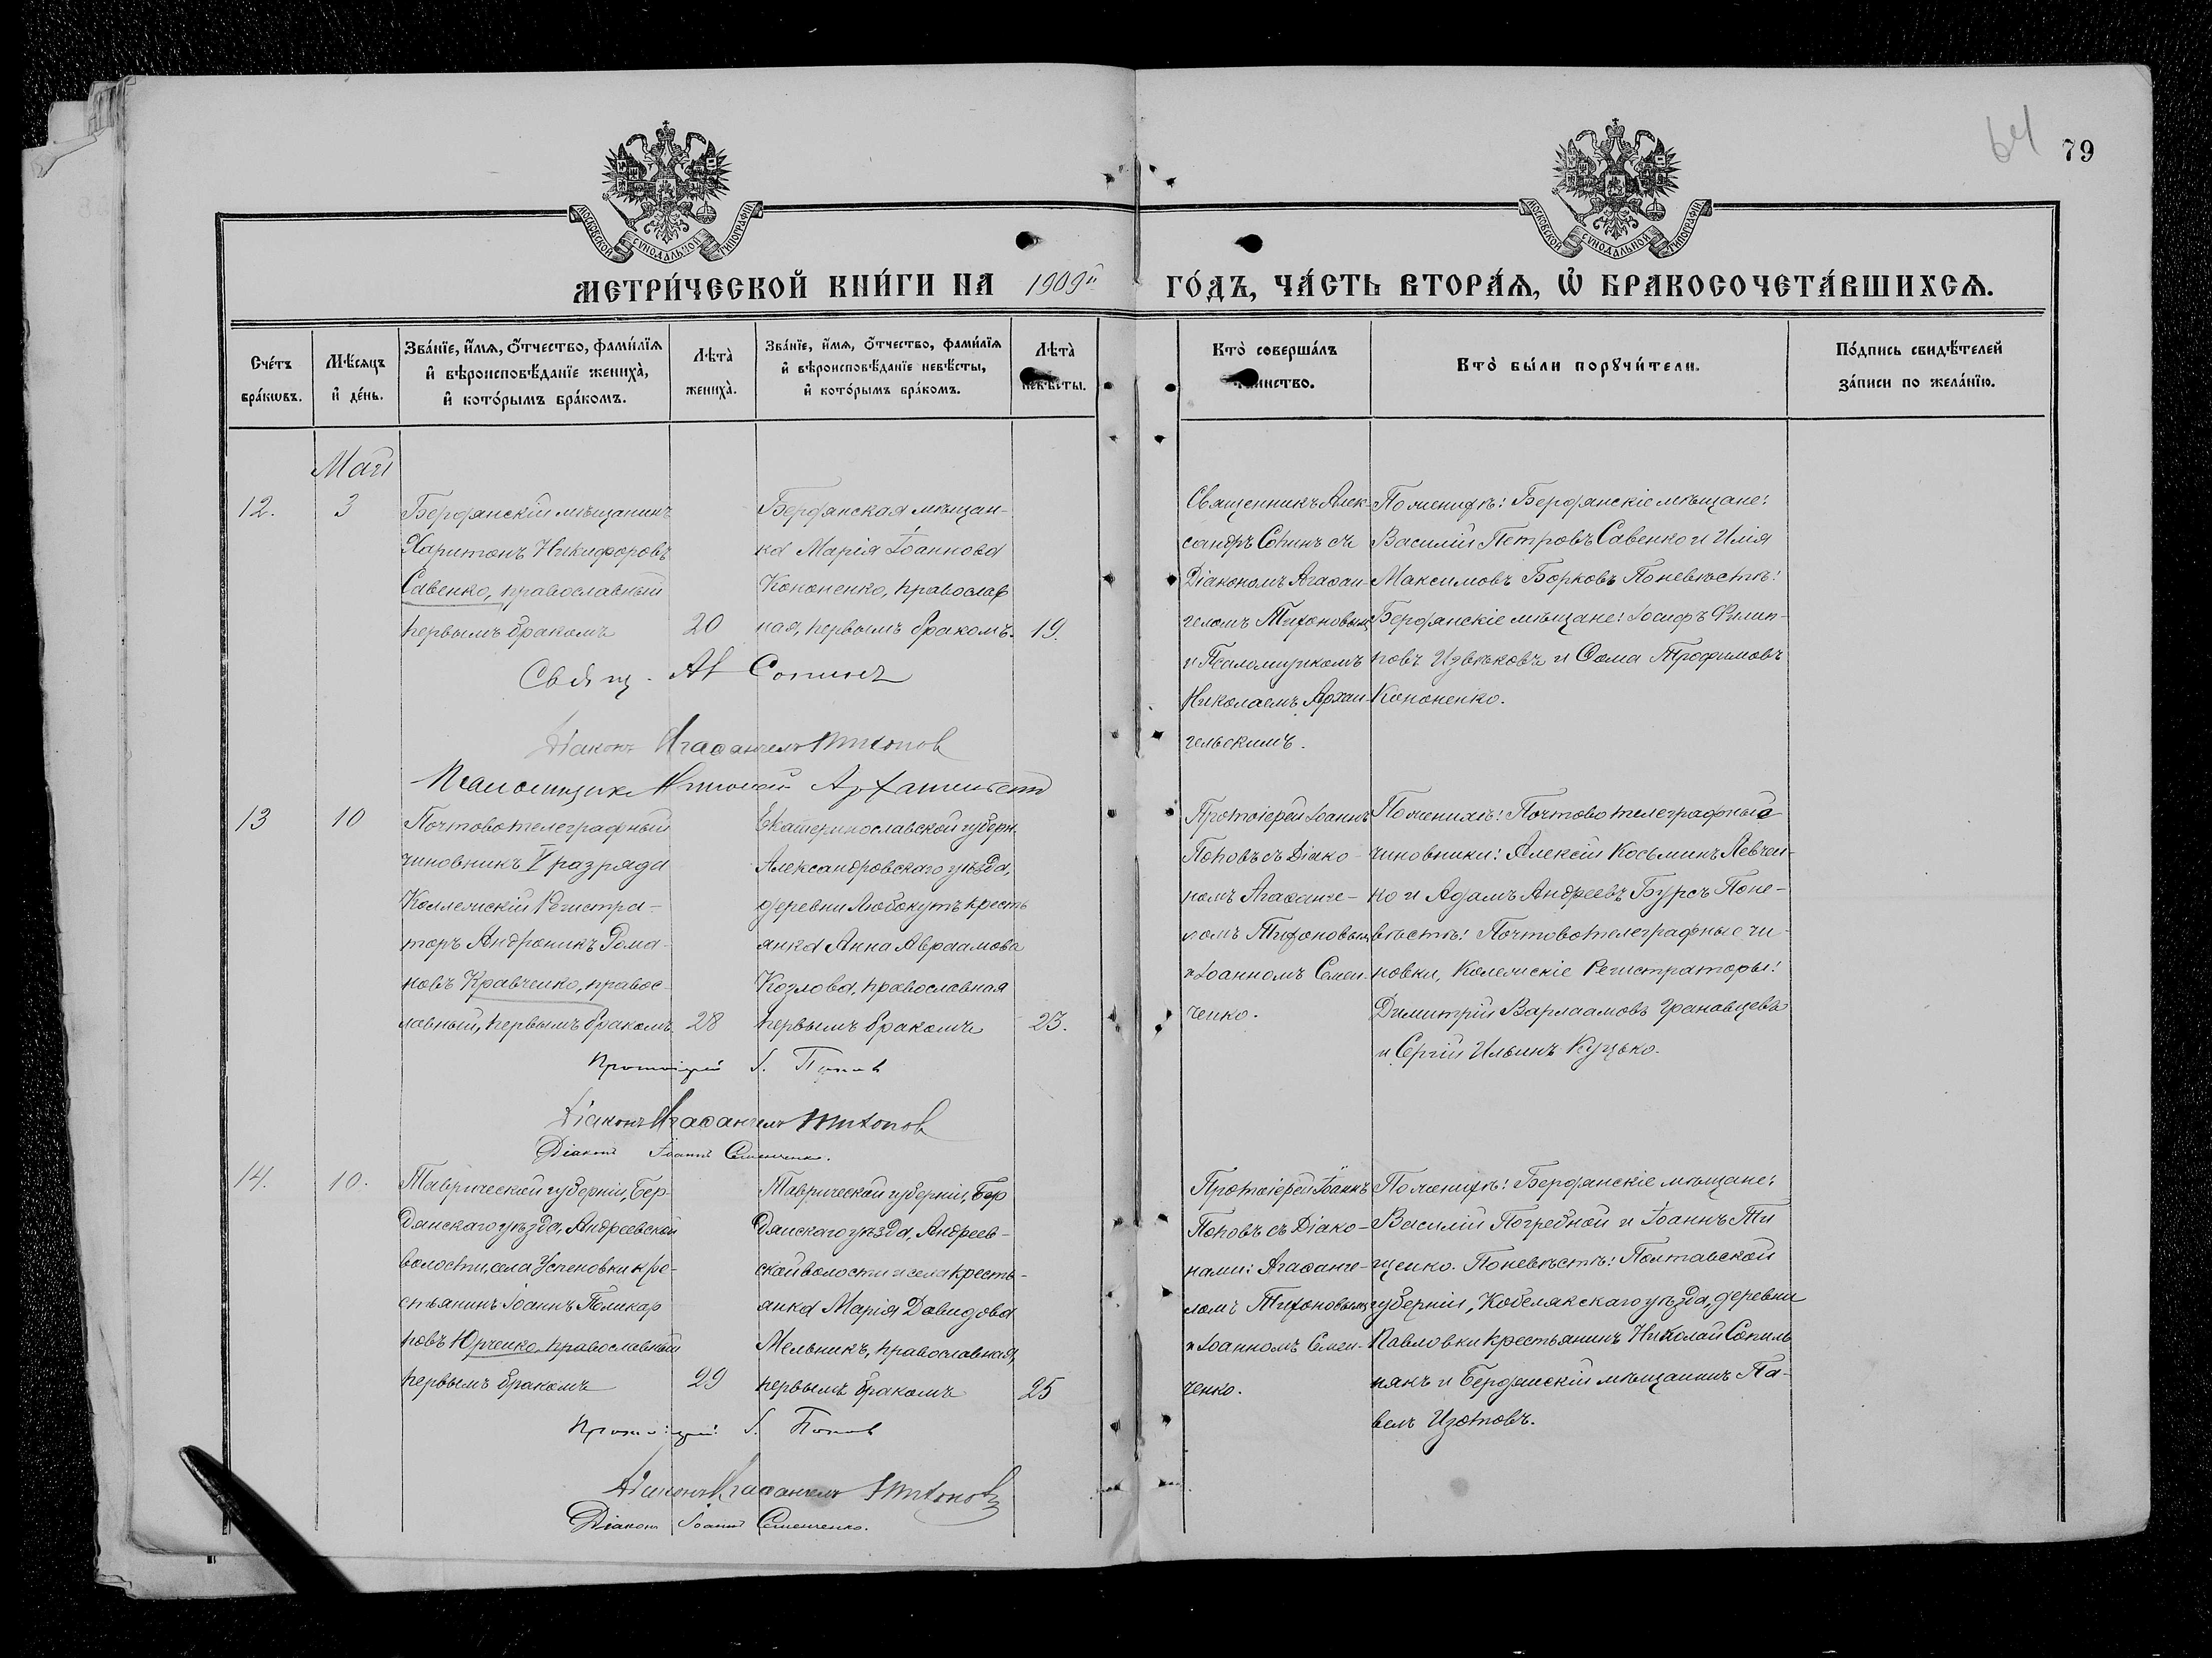 64 79
МОСКОВСКОЙ СѴНОДАЛЬНОЙ ТИПОГРАФІИ
МОСКОВСКОЙ СѴНОДАЛЬНОЙ ТИПОГРАФІИ
МЕТРИ́ЧЕСКОЙ КНИ́ГИ НА 1909й ГО́ДЪ, ЧА́СТЬ ВТОРА́Я, Ѡ БРАКОСОЧЕТА́ВШИХСЯ.
Сче́тъ бра́кѡвъ.
Мѣ́сяцъ и де́нь.
Зва́нїе, и́мя, о́тчество, фами́лїя и вѣроисповѣ́данїе жениха̀, и кото́рымъ бра́комъ.
Лѣта̀ жениха̀.
Зва́нїе, и́мя, о́тчество, фами́лїя и вѣроисповѣ́данїе невѣ́сты, и кото́рымъ бра́комъ.
Лѣта̀ невѣ́сты.
Кто̀ соверша́лъ таинство.
Кто̀ бы́ли порꙋчи́тели.
По́дпись свидѣ́телей за́писи по жела́нїю.
Май
12.
3
Бердянскій мѣщанинъ
Харитонъ Никифоровъ
Савенко, православный
первымъ бракомъ
20
Бердянская мѣщан-
ка Марія Іоаннова
Кононенко, православ
ная, первымъ бракомъ.
19.
Священникъ Алек-
сандръ Сопинъ съ
Діакономъ Агаѳан-
геломъ Тихоновымъ
и Псаломщикомъ
Николаемъ Архан-
гельскимъ.
По женихѣ: Бердянскіе мѣщане:
Василій Петровъ Савенко и Илія
Максимовъ Борковъ По невѣстѣ:
Бердянскіе мѣщане: Іосифъ Филип-
повъ Извѣковъ и Ѳома Трофимовъ
Кононенко.
Свящ. Ал Сопинъ
Діаконъ Агаѳангелъ Тихонов
Псаломщикъ Николай Архангельскій
13
10
Почтовотелеграфный
чиновникъ V разряда
Коллежскій Регистра-
торъ Андроникъ Рома-
новъ Кравченко, правос-
лавный, первымъ бракомъ.
28
Екатеринославской губерн.
Александровскаго уѣзда,
деревни Любокутъ кресть
янка Анна Авраамова
Козлова, православная
первымъ бракомъ
23.
Протоіерей Іоаннъ
Поповъ съ Діако-
номъ Агаѳанге-
ломъ Тихоновымъ
и Іоанномъ Семен-
ченко.
По женихѣ: Почтовотелеграфные
чиновники: Алексій Косьминъ Левчен-
ко и Адамъ Андреевъ Бурсъ По не-
вѣстѣ: Почтовотелеграфные чи-
новки, Колежскіе Регистраторы:
Димитрій Варлаамовъ Грановцевъ
и Сергій Ильинъ Куцько.
Протоіерей І. Попов
Діаконъ Агаѳангелъ Тихонов
Діаконъ Іоаннъ Семенченко.
14.
10.
Таврической губерніи, Бер-
дянскаго уѣзда, Андреевской
волости, села Успеновки кре-
стьянинъ Іоаннъ Поликар
повъ Юрченко, православный
первымъ бракомъ
29
Таврической губерніи, Бер
дянскаго уѣзда, Андреев-
ской волости и села кресть-
янка Марія Давидова
Мельникъ, православная,
первымъ бракомъ
25
Протоіерей Іоаннъ
Поповъ съ Діако-
нами: Агаѳанге-
ломъ Тихоновымъ
и Іоанномъ Семен-
ченко.
По женихѣ: Бердянскіе мѣщане:
Василій Погребной и Іоаннъ Ти
щенко. По невѣстѣ: Полтавской
губерніи, Кобелякскаго уѣзда, деревни
Павловки крестьянинъ Николай Сопиль
някъ и Бердянскій мѣщанинъ Па-
велъ Изотовъ.
Протоіерей І. Попов
Діаконъ Агаѳангелъ Тихонов
Діаконъ Іоаннъ Семенченко.